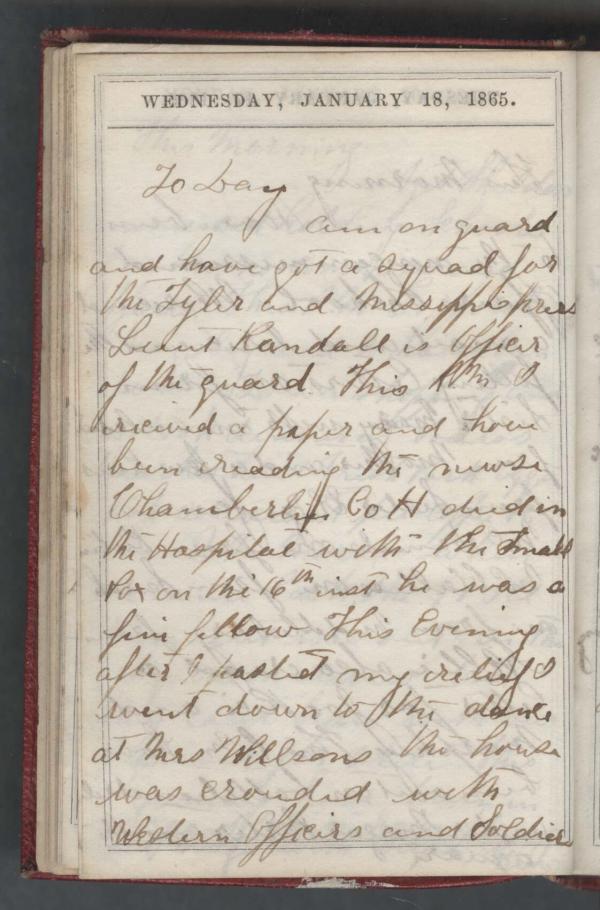 WEDNESDAY, JANUARY 18, 1865.
To Day
am on guard
and have got a squad for
the Tyler and Missippi
Leiut Randall is Officir
of the guard. This PM I
recieved a paper and have
been reading the newse
Chamberlin Co H died in
the Hospital with the Small
Pox on the 16th inst he was a
fine fellow This Evening
after I posted my relief I
went down to the dance
at Mrs Willsons the house
was crouded with
Western Officirs and Soldiers